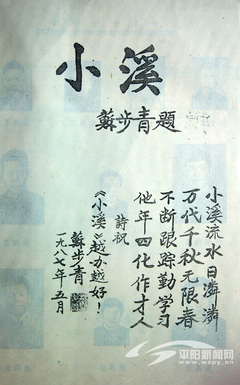 小溪
蘇步青題
小溪流水日潺潺
万代千秋无限春
不断跟踪勤学习
他年四化作才人
詩祝
《小溪》越办越好！
蘇步青
一九八七年五月
平阳新闻网
www.pynews.cn